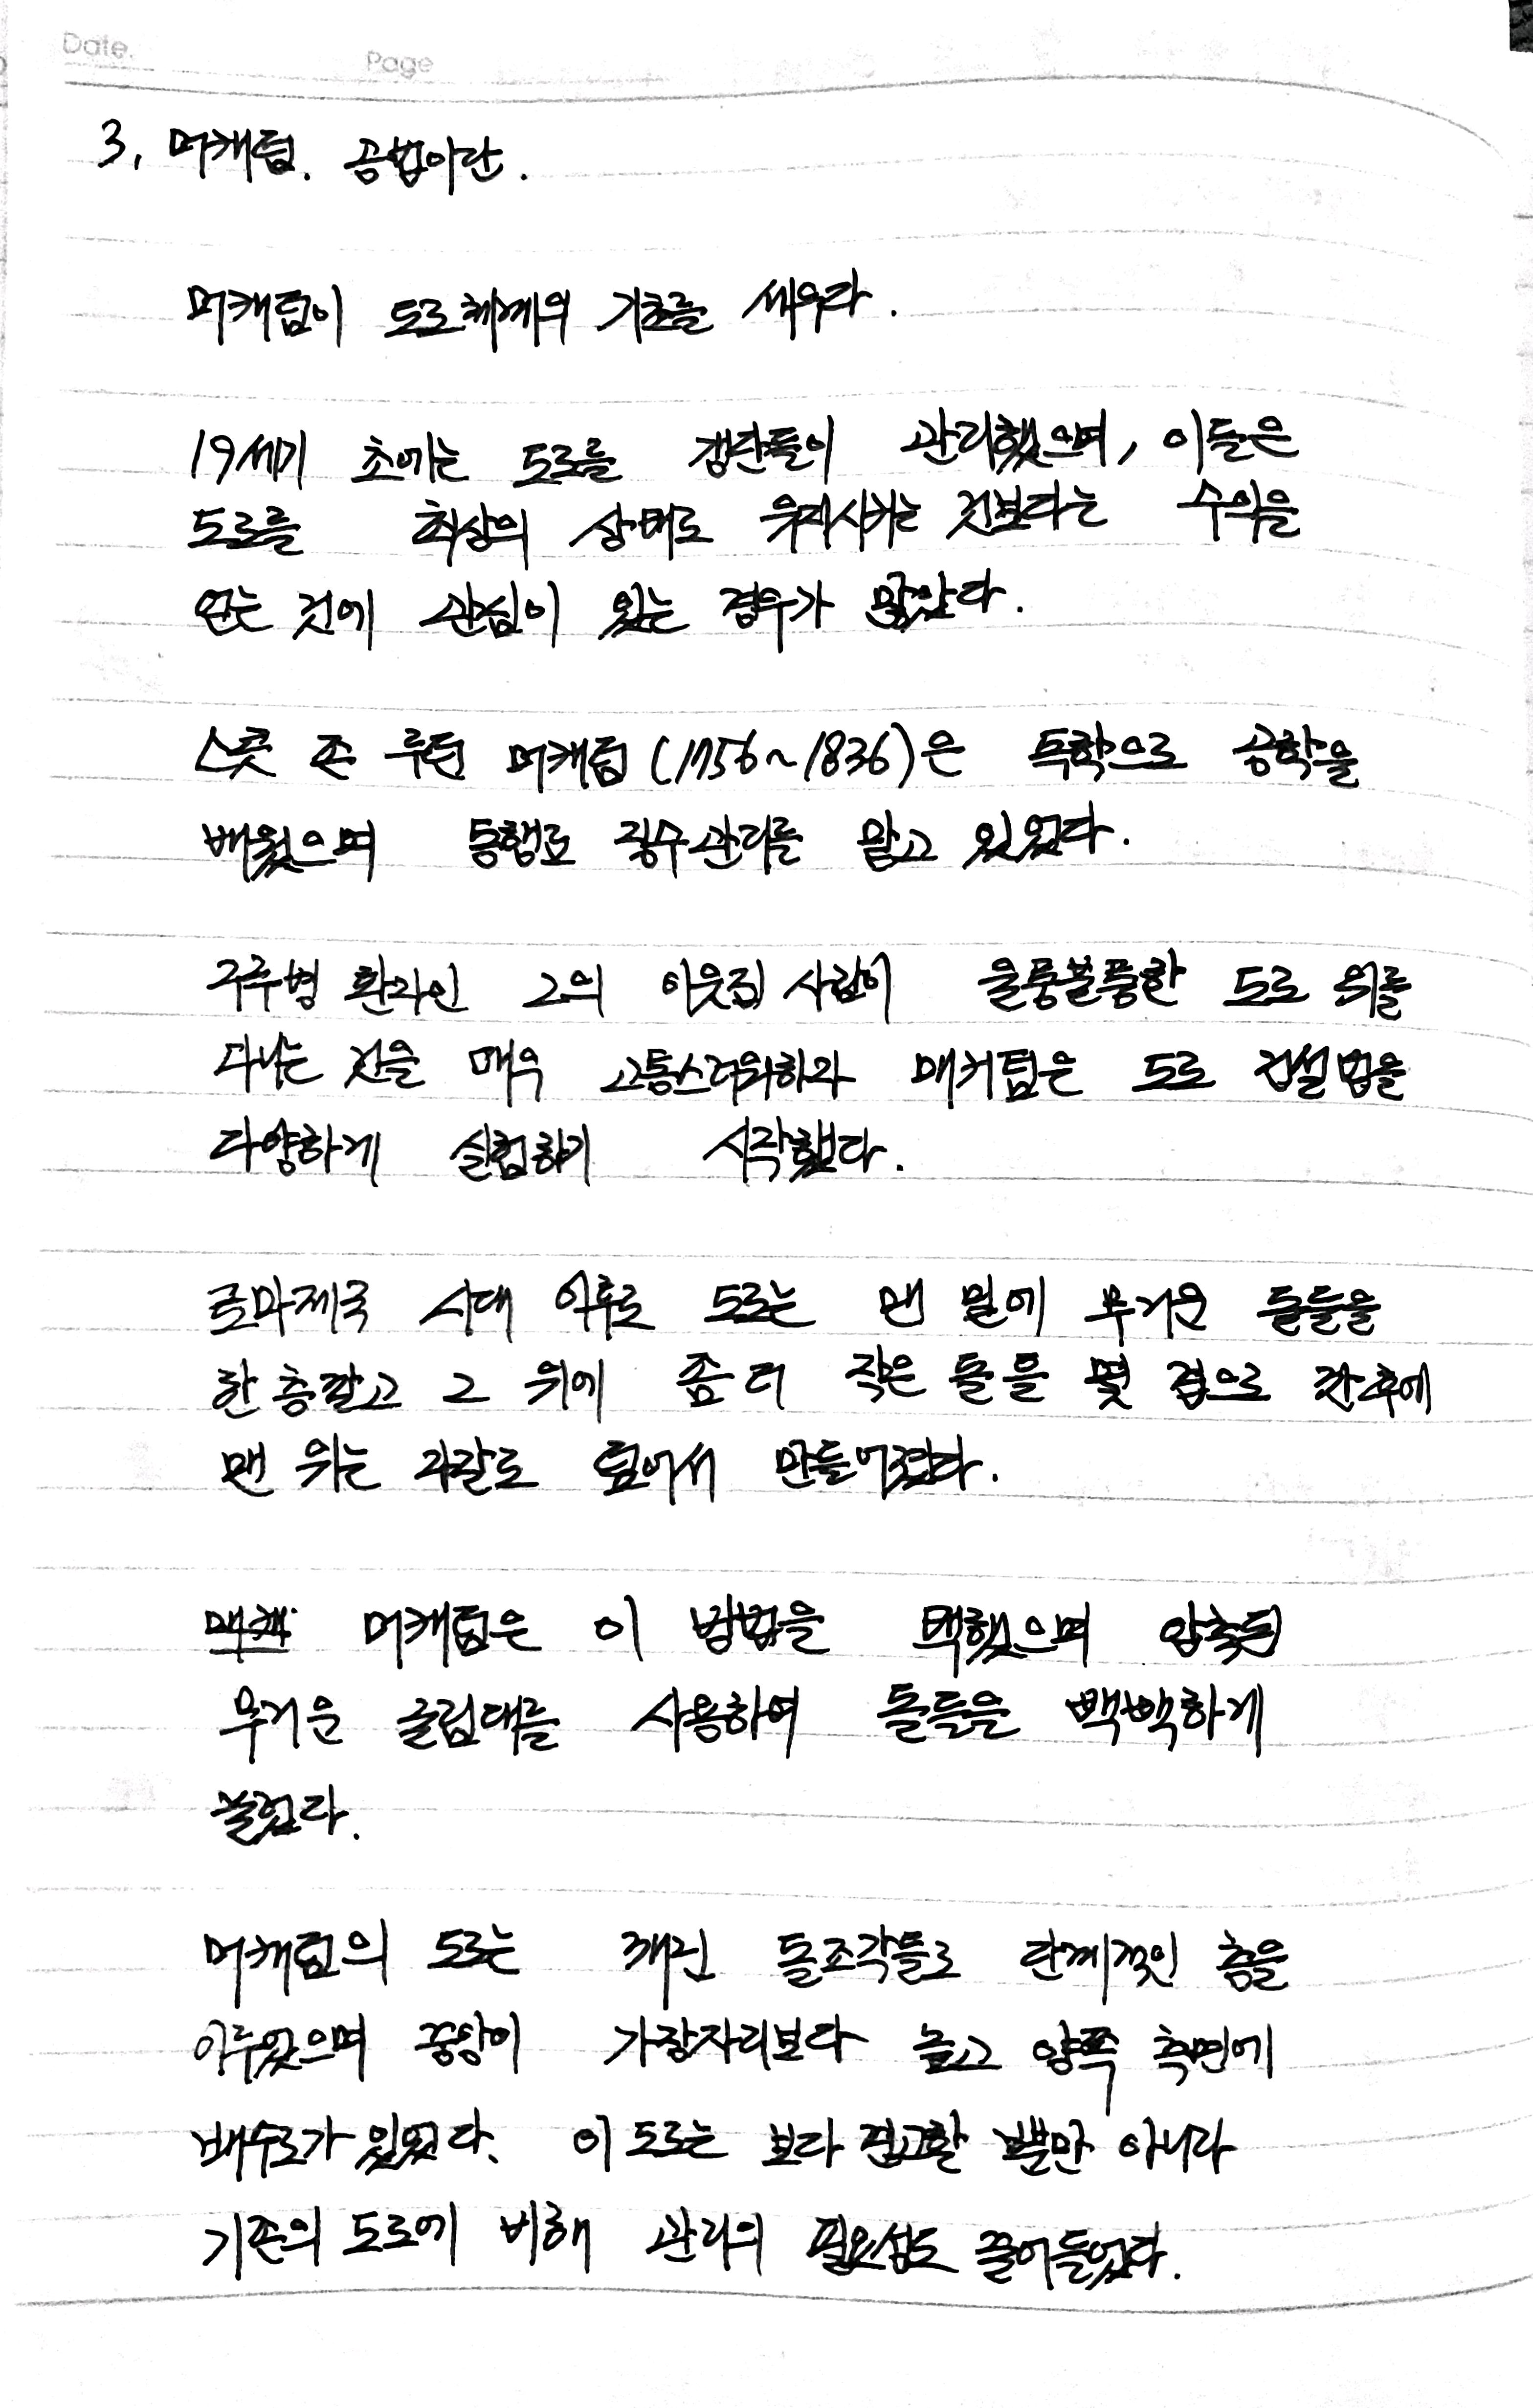 Date.
Page
3. 머캐덤. 공법이란.
머캐덤이 도로체계의 기초를 세우다.
19세기 초에는 도로를 갱단들이 관리했으며, 이들은
도로를 최상의 상태로 유지시키는 것보다는 수익을
얻는 것에 관심이 있는 경우가 많았다.
스콧 존 루턴 머캐덤 (1756~1836)은 독학으로 공학을
배웠으며 통행로 징수관리를 맡고 있었다.
구루병 환자인 그의 이웃집 사람이 울퉁불퉁한 도로 위를
다니는 것을 매우 고통스러워하자 매커덤은 도로 건설법을
다양하게 실험하기 시작했다.
로마제국 시대 이후로 도로는 맨 밑에 무거운 돌들을
한 층깔고 그 위에 좀 더 작은 돌들을 몇 겹으로 깐후에
맨 위는 자갈로 덮어서 만들어졌다.
머캐덤은 이 방법을 택했으며 압축된
무거운 굴림대를 사용하여 돌들을 빽빽하게
쏠렸다.
머캐덤의 도로는 깨진 돌조각들로 단계적인 층을
이루었으며 중앙이 가장자리보다 높고 양쪽 측면에
배수로가 있었다. 이 도로는 보다 견고할 뿐만 아니라
기존의 도로에 비해 관리의 필요성도 줄어들었다.